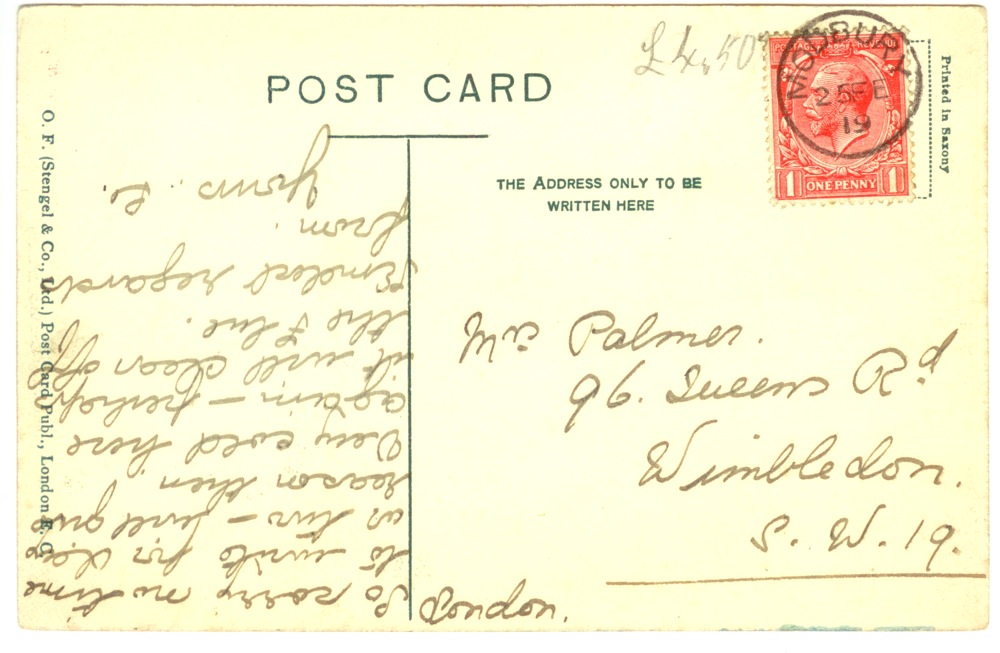 POST CARD
£4.50
THE ADDRESS ONLY TO BE
WRITTEN HERE
MODBURY
2 FE
19
POSTAGE REVENUE
1 ONE PENNY 1
Printed in Saxony
O. F. (Stengel & Co., Ltd.) Post Card Publ., London E. C.
Mrs Palmer.
96. Queens Rd
Wimbledon.
S. W. 19.
London.
So sorry no time
to write for day
or two - will give
reason then
Very cold here
again - perhaps
it will clear off
the Flue.
Kindest regards
from
yours